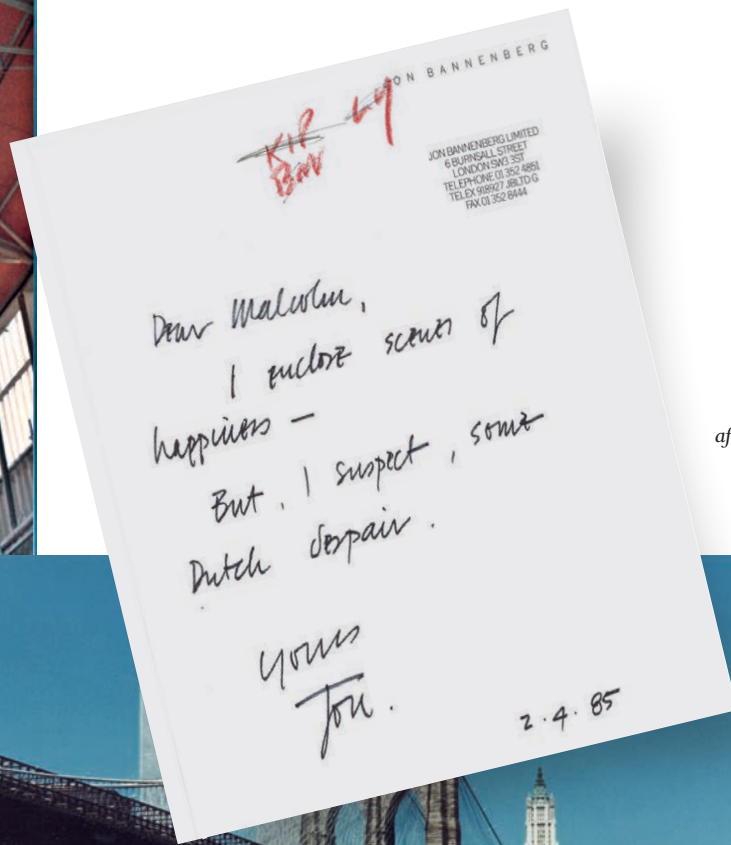 JON BANNENBERG
KIP
BNV
JON BANNENBERG LIMITED
6 BURNSALL STREET
LONDON SW3 3ST
TELEPHONE 01 352 4851
TELEX 918927 JBLTD G
FAX 01 352 8444
Dear Malcolm,
I enclose scenes of
happiness –
But, I suspect, some
Dutch despair.
Yours
Jon.
2.4.85
af